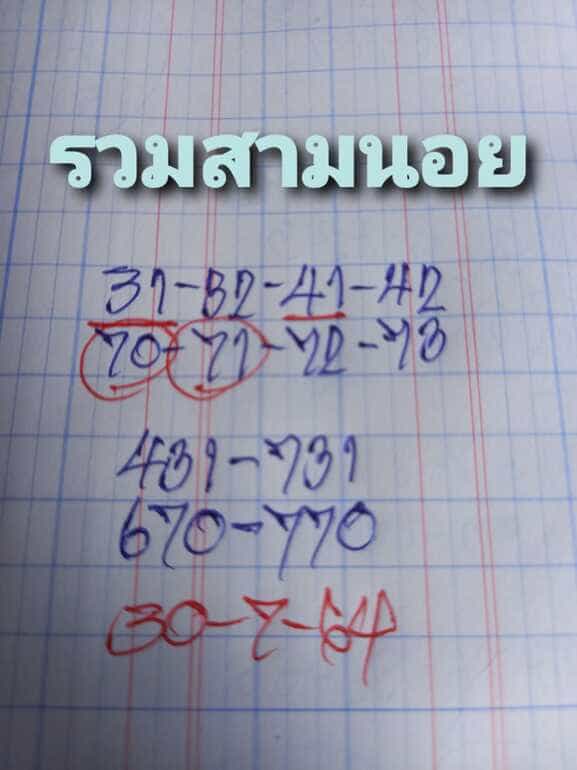 รวมสามนอย
31-32-41-42
70-71-72-73
431-731
670-770
30-7-64